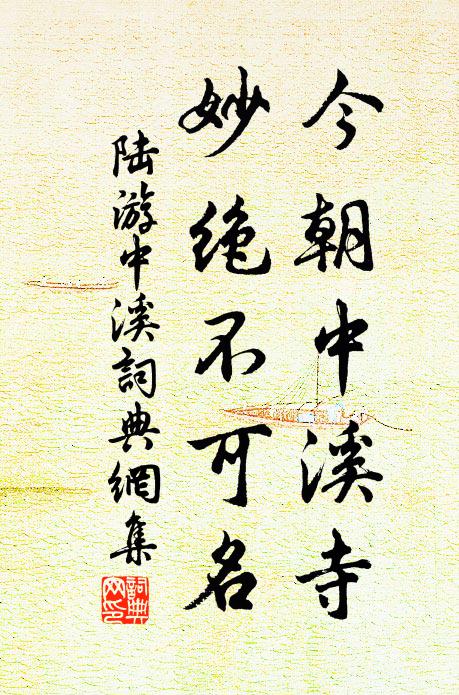 今朝中溪寺
妙絶不可名
陆游中溪詞典網集
詞典
网印